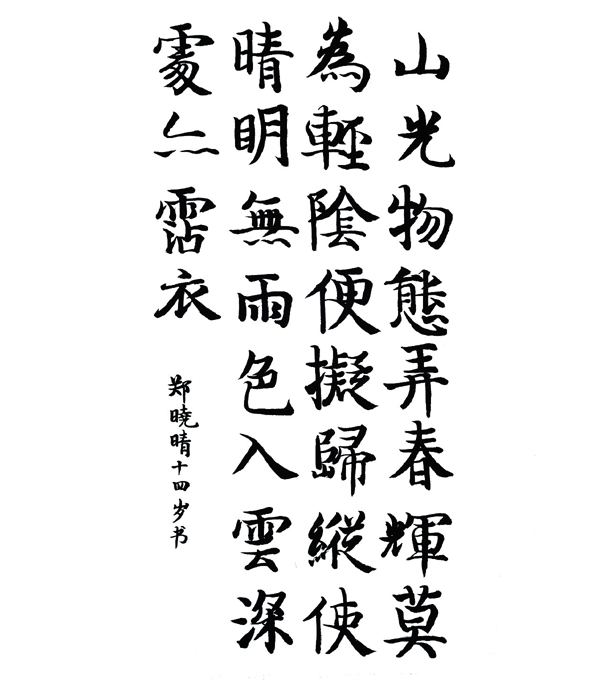 山光物態弄春輝莫
為輕陰便擬歸縱使
晴明無雨色入雲深
處亦霑衣
郑曉晴十四岁书